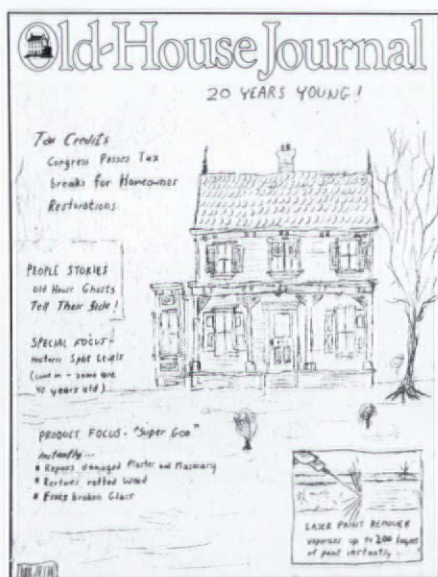 Old-House Journal
20 YEARS YOUNG!
Tax Credits
Congress Passes Tax
breaks for Homeowner
Restorations
PEOPLE STORIES
Old House Ghosts
Tell Their Side!
SPECIAL FOCUS-
Historic Split Levels
some are
40 years old)
PRODUCT FOCUS - "Super Goo"
Instantly...
* Repairs damaged Plaster and Masonary
* Restores rotted Wood
* Fixes broken Glass
LASER PAINT REMOVER
vaporizes up to 200 layers
of paint instantly